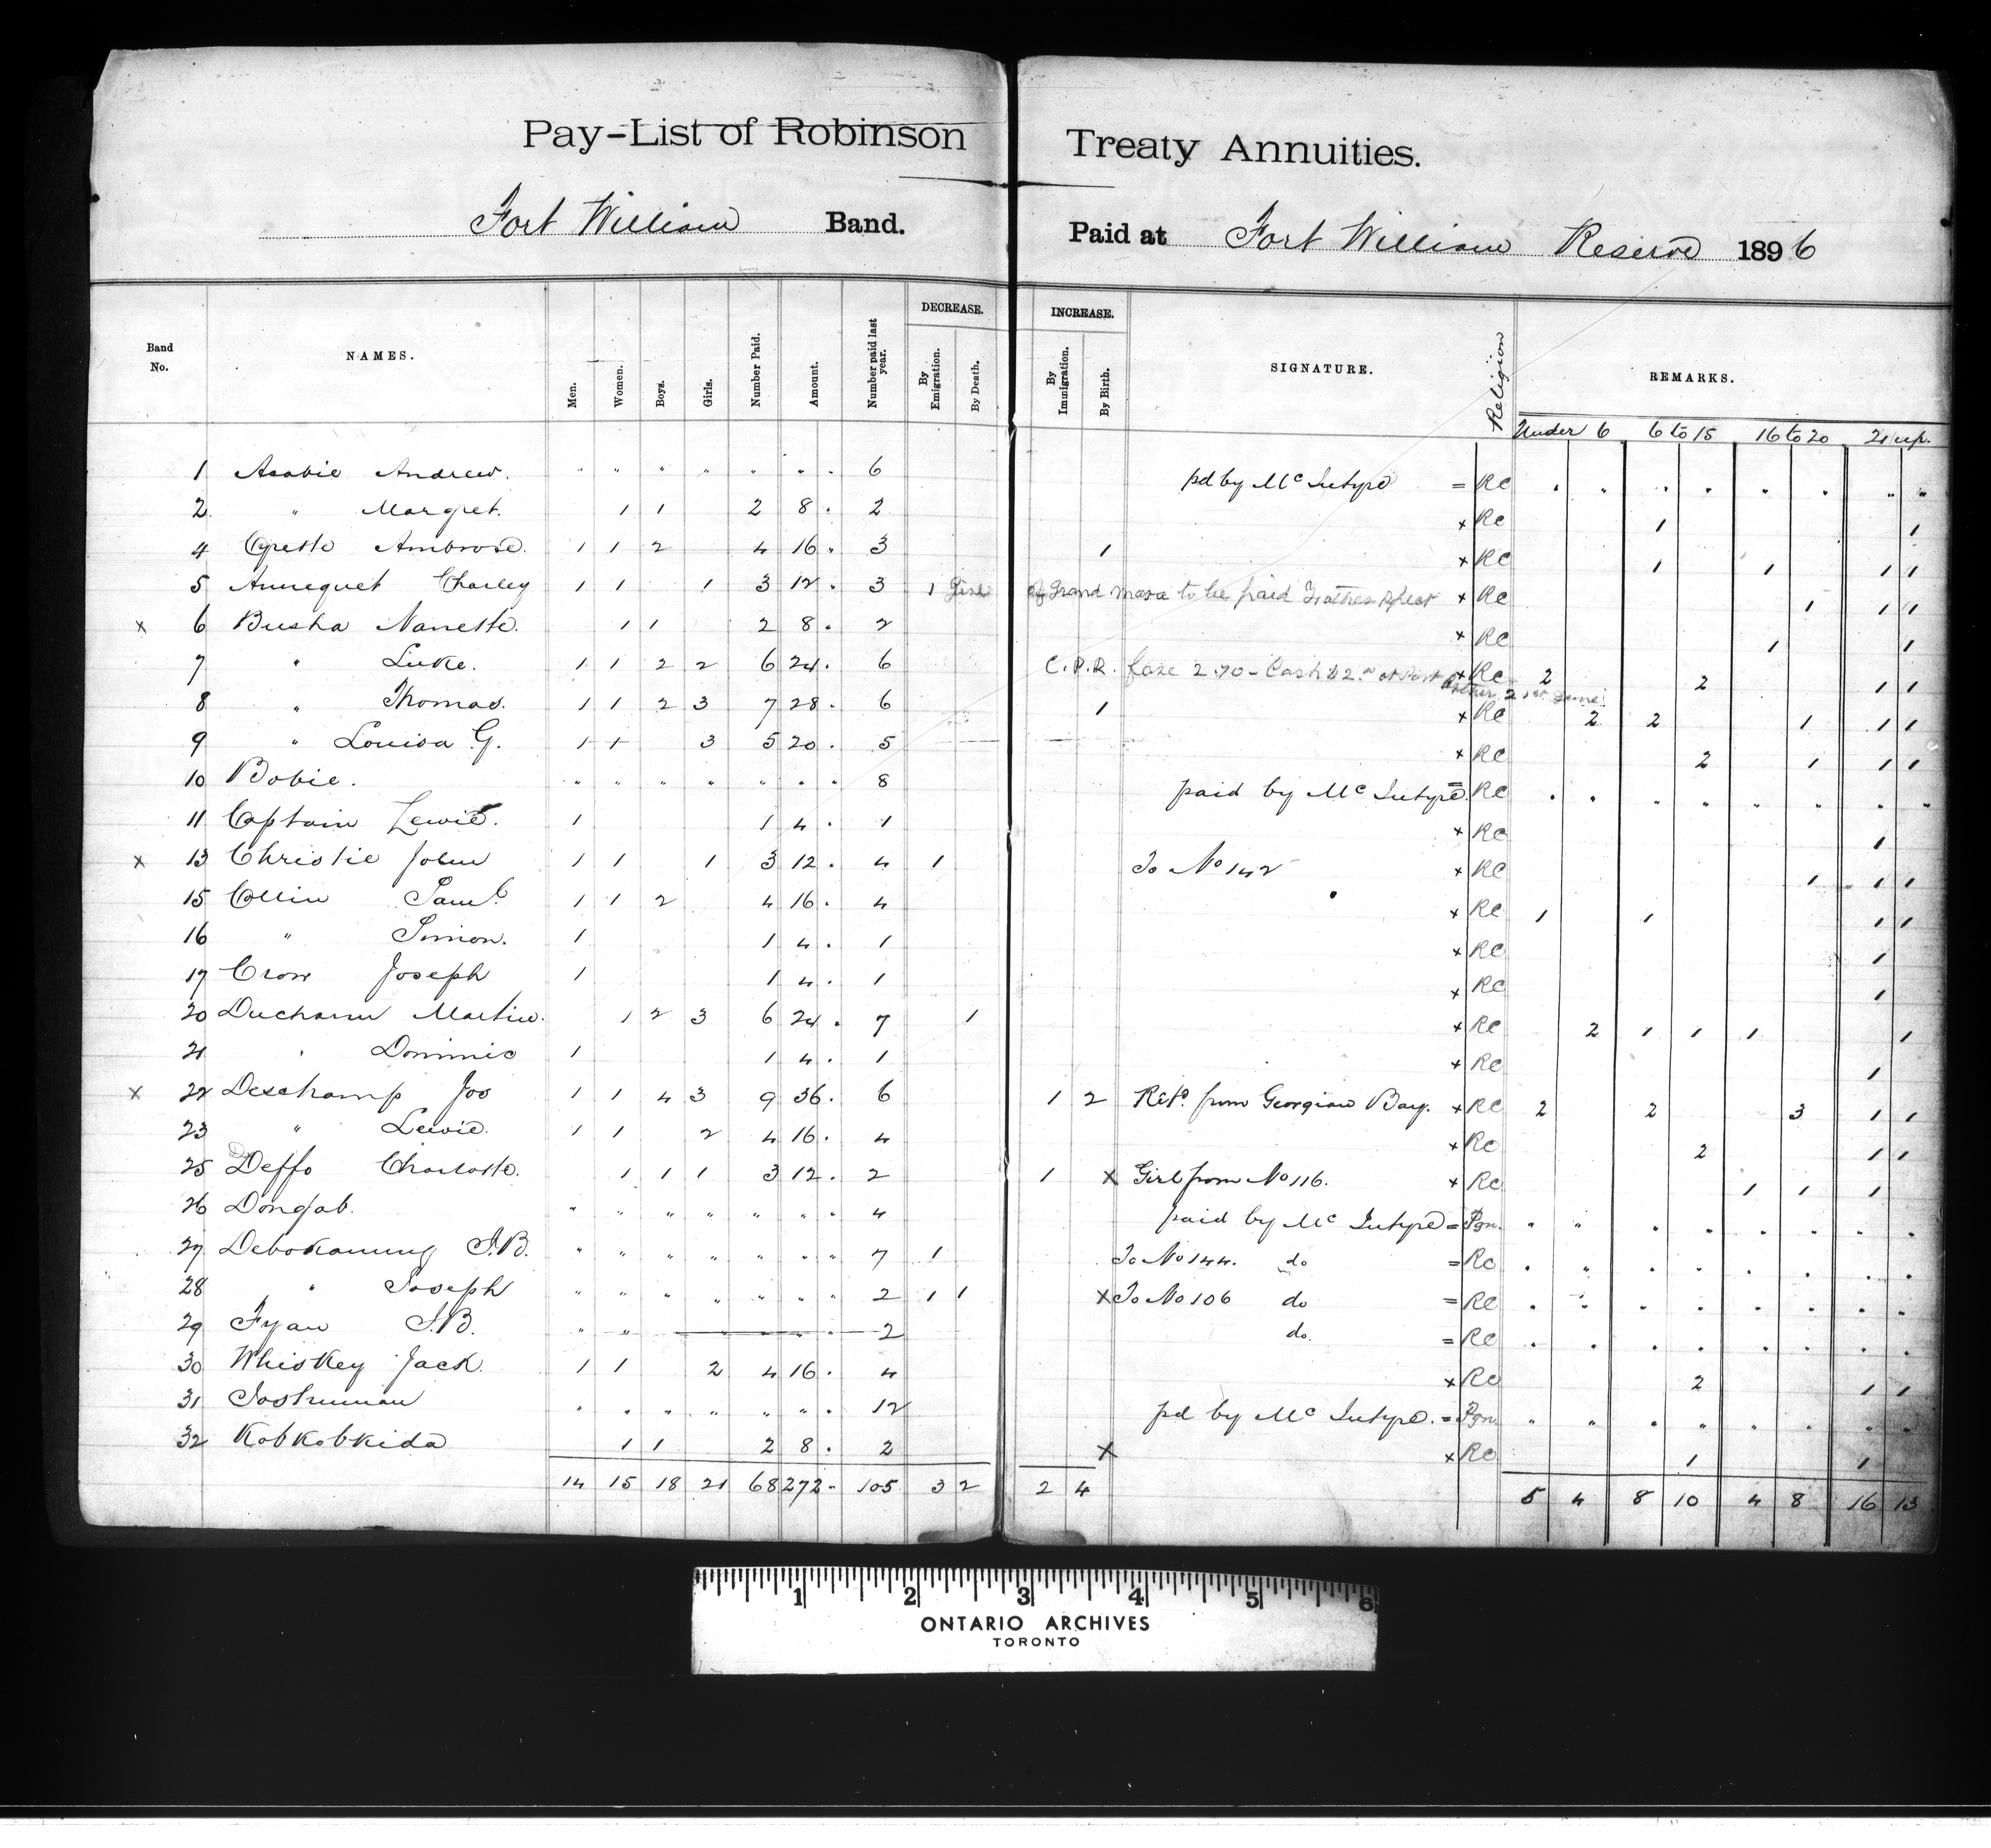 Pay-List of Robinson Treaty Annuities.
Fort William Band. Paid at Fort William Reserve 1896
Band No. NAMES. Men. Women. Boys. Girls. Number Paid. Amount. Number paid last year. DECREASE. By Emigration. By Death. INCREASE. By Immigration. By Birth. SIGNATURE. Religion REMARKS.
Under 6 6 to 15 16 to 20 21 up.
1 Andrew. " " " " " " . 6 pd by McIntyre = RC . . . . . . . .
2 " Margret. 1 1 2 8 . 2 x RC 1 1
4 Ambrose. 1 1 2 4 16 . 3 1 x RC 1 1 1 1
5 Annequet Charley 1 1 1 3 12 . 3 1 Girl of Grand to be paid x RC 1 1 1
x 6 Busha Nanette. 1 1 2 8 . 2 x RC 1 1
7 " Luke. 1 1 2 2 6 24 . 6 C.P.R. fare 2.70 - Cash $2. at Port Arthur 21st June x RC 2 2 1 1
8 " Thomas. 1 1 2 3 7 28 . 6 1 x RC 2 2 1 1 1
9 " Louisa G. 1 1 3 5 20 . 5 x RC 2 1 1 1
10 Bobie. " " " " " " " 8 paid by McIntyre. = RC . . . . . . . .
11 Captain Lewie. 1 1 4 . 1 x RC 1
x 13 Christie John 1 1 1 3 12 . 4 1 To No 142 x RC 1 1 1
15 Collin Saml. 1 1 2 4 16 . 4 x RC 1 1 1 1
16 " Simon. 1 1 4 . 1 x RC 1
17 Crow Joseph 1 1 4 . 1 x RC 1
20 Martin. 1 2 3 6 24 . 7 1 x RC 2 1 1 1 1
21 " Dominic 1 1 4 . 1 x RC 1
x 22 Deschamp Joo 1 1 4 3 9 36 . 6 1 2 Retd. from Georgian Bay. x RC 2 2 3 1 1
23 " Lewie. 1 1 2 4 16 . 4 x RC 2 1 1
25 Deffo Charlotte. 1 1 1 3 12 . 2 1 x Girl from No 116. x RC 1 1 1
26 Dongab. " " " " " " " 4 paid by McIntyre = Pgn. . " . . . . . .
27 J.B. " " " " " " " 7 1 To No 144. do = RC . " . . . . . .
28 " Joseph " " " " " " " 2 1 1 x To No 106 do = RC . . . . . . . .
29 Fyan J.B. " " 2 do. = RC . . . . . . . .
30 Whiskey Jack. 1 1 2 4 16 . 4 x RC 2 1 1
31 " " " " " " " 12 pd by McIntyre. = Pgn. " " . . . . . .
32 Kobkobkida 1 1 2 8 . 2 x x RC 1 1
14 15 18 21 68 272 - 105 3 2 2 4 5 4 8 10 4 8 16 13
1 2 3 4 5 6
ONTARIO ARCHIVES
TORONTO